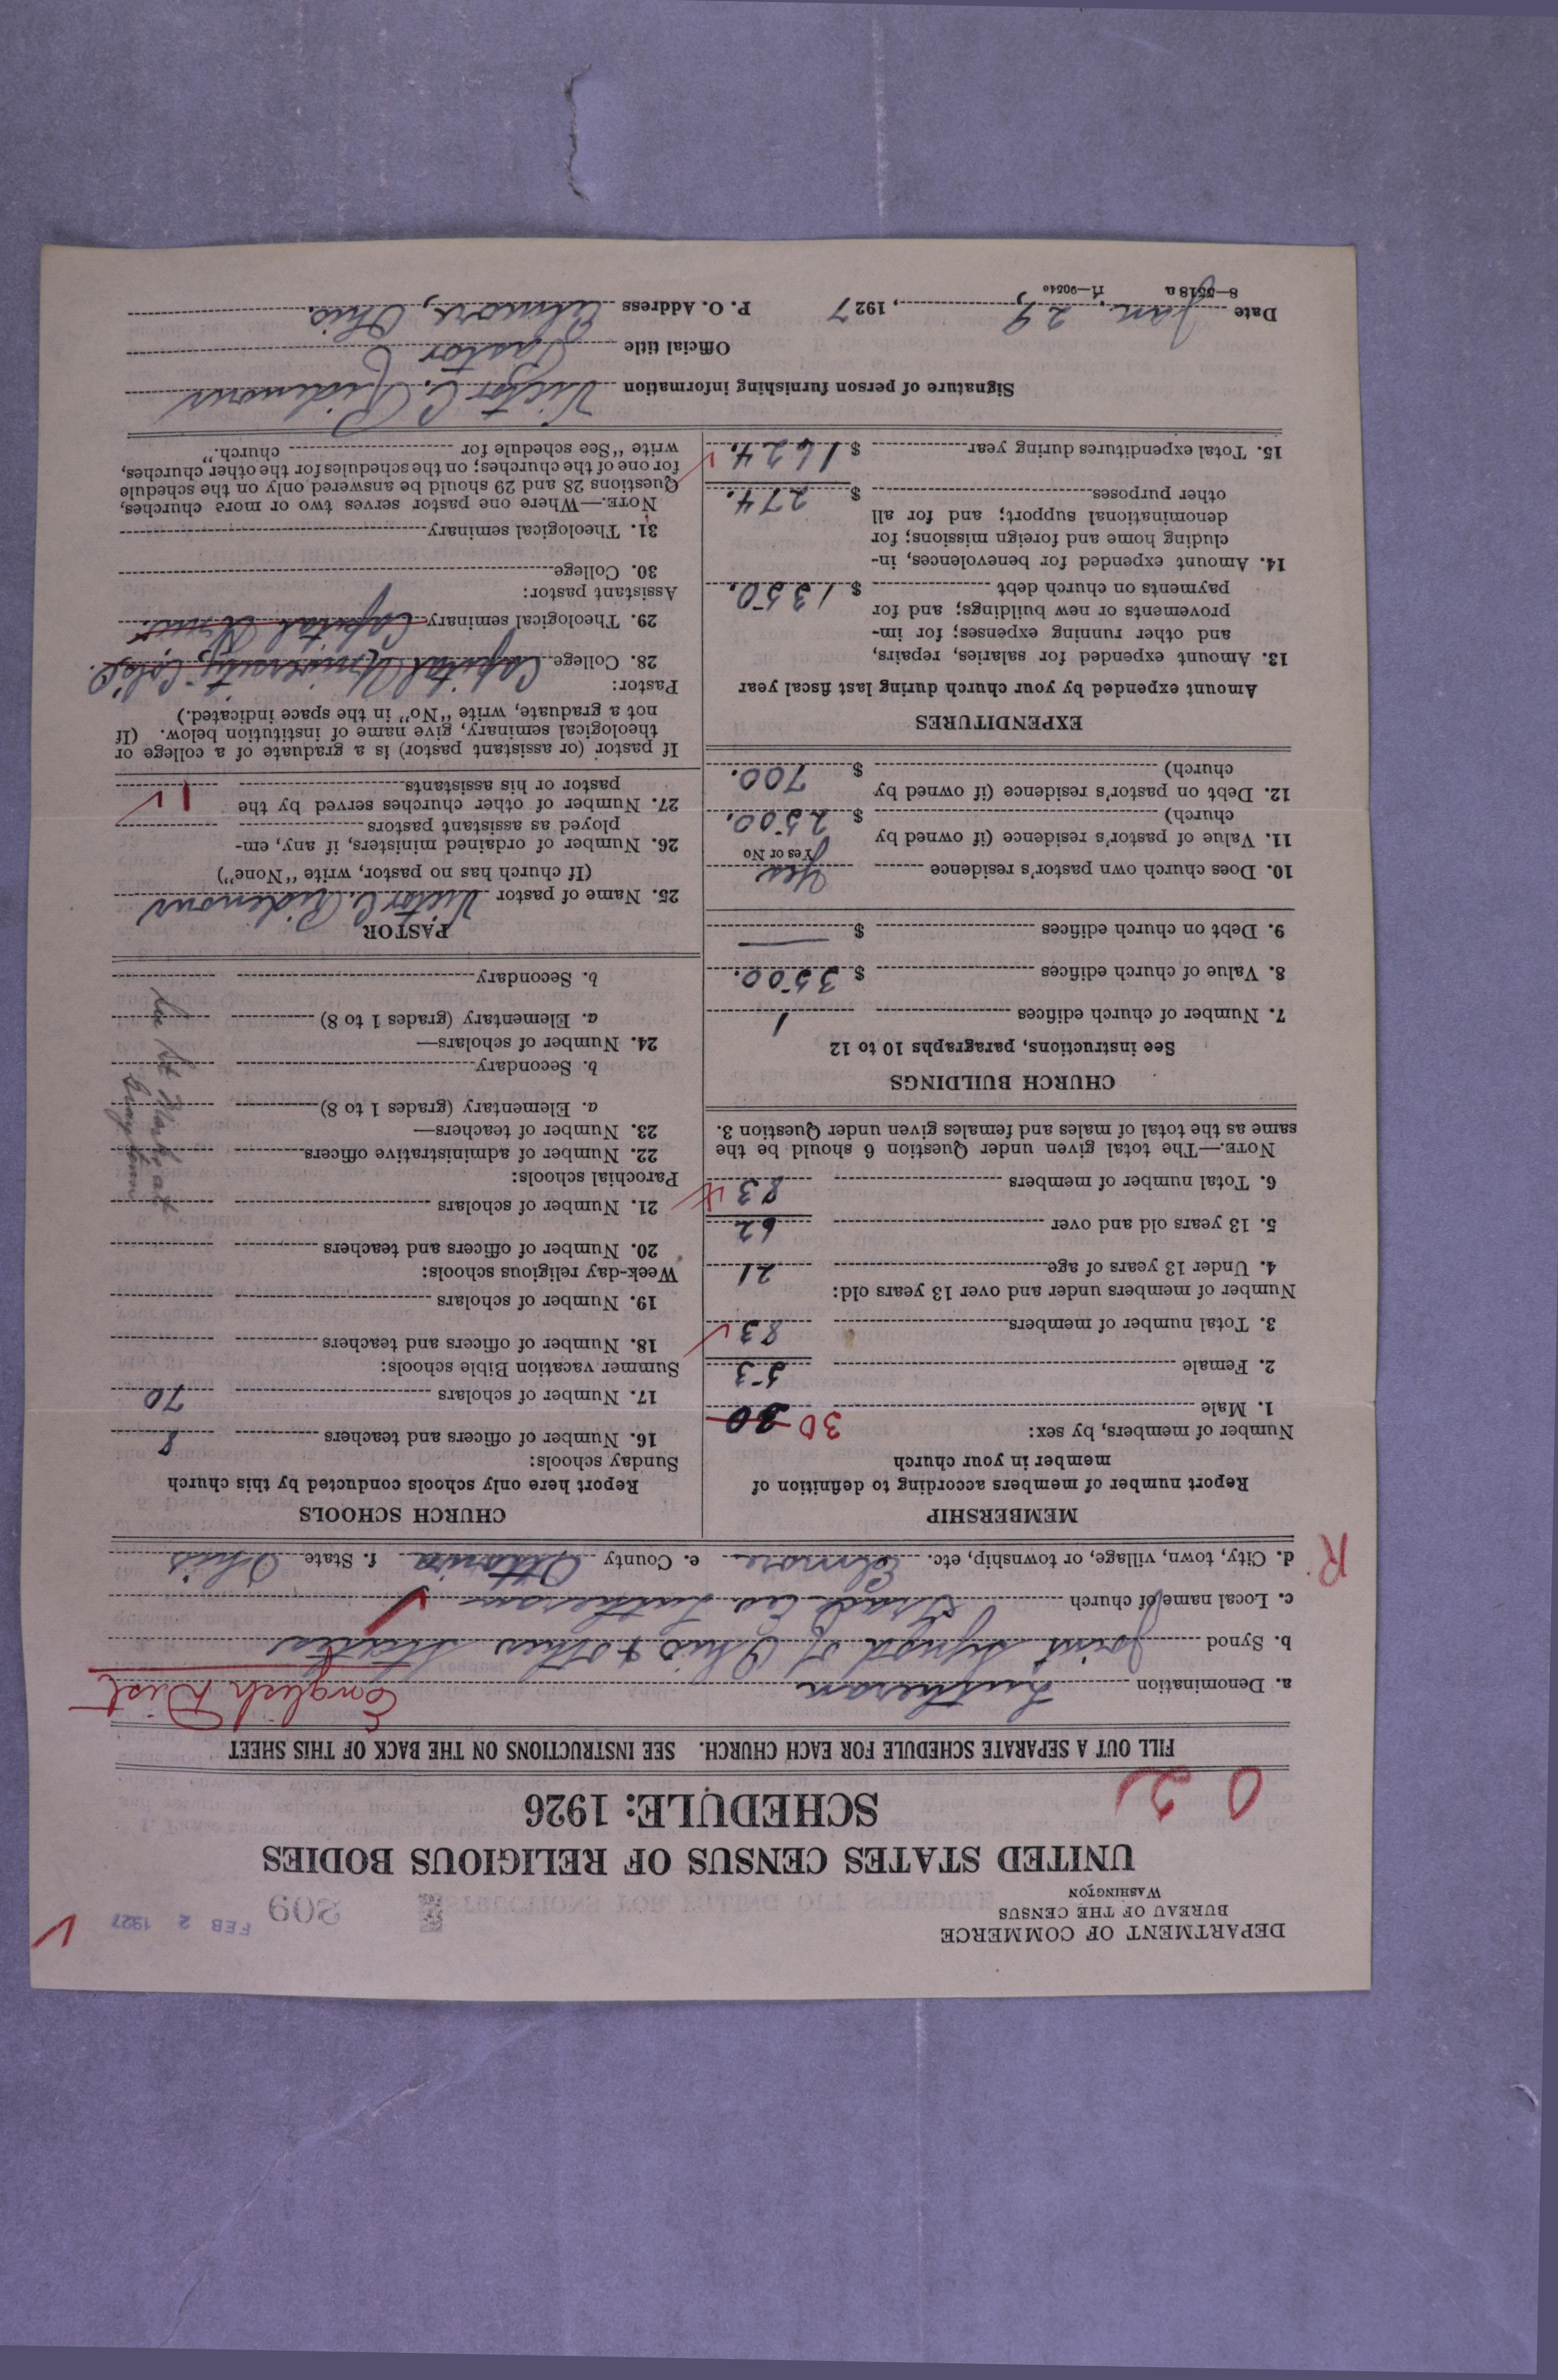 DEPARTMENT OF COMMERCE
BUREAU OF THE CENSUS
WASHINGTON
209
FEB 2 1927
UNITED STATES CENSUS OF RELIGIOUS BODIES
SCHEDULE: 1926
FILL OUT A SEPARATE SCHEDULE FOR EACH CHURCH. SEE INSTRUCTIONS ON THE BACK OF THIS SHEET
a. Denomination Lutheran English Dist
b. Synod Joint Synod of Ohio & other States
c. Local name of church Grace Ev Lutheran
d. City, town, village, or township, etc. Elmore e. County Ottawa f. State Ohio
R.
MEMBERSHIP
Report number of members according to definition of
member in your church
Number of members, by sex:
1. Male 30 30
2. Female 53
3. Total number of members 83
Number of members under and over 13 years old:
4. Under 13 years of age 21
5. 13 years old and over 62
6. Total number of members 83
NOTE.—The total given under Question 6 should be the
same as the total of males and females given under Question 3.
CHURCH BUILDINGS
See instructions, paragraphs 10 to 12
7. Number of church edifices 1
8. Value of church edifices $ 3500.
9. Debt on church edifices $
10. Does church own pastor's residence Yes
Yes or No
11. Value of pastor's residence (if owned by
church) $ 2500.
12. Debt on pastor's residence (if owned by
church) $ 700.
EXPENDITURES
Amount expended by your church during last fiscal year
13. Amount expended for salaries, repairs,
and other running expenses; for im-
provements or new buildings; and for
payments on church debt $ 1350.
14. Amount expended for benevolences, in-
cluding home and foreign missions; for
denominational support; and for all
other purposes $ 274.
15. Total expenditures during year $ 1624.
CHURCH SCHOOLS
Report here only schools conducted by this church
Sunday schools:
16. Number of officers and teachers 8
17. Number of scholars 70
Summer vacation Bible schools:
18. Number of officers and teachers
19. Number of scholars
Week-day religious schools:
20. Number of officers and teachers
21. Number of scholars
Parochial schools:
22. Number of administrative officers
23. Number of teachers—
a. Elementary (grades 1 to 8)
b. Secondary
24. Number of scholars—
a. Elementary (grades 1 to 8)
b. Secondary
PASTOR
25. Name of pastor Victor C. Ridenour
(If church has no pastor, write "None")
26. Number of ordained ministers, if any, em-
ployed as assistant pastors
27. Number of other churches served by the
pastor or his assistants 1
If pastor (or assistant pastor) is a graduate of a college or
theological seminary, give name of institution below. (If
not a graduate, write "No" in the space indicated.)
Pastor:
28. College Capital University, Col. O.
29. Theological seminary Capital Univ.
Assistant pastor:
30. College
31. Theological seminary
NOTE.—Where one pastor serves two or more churches,
Questions 28 and 29 should be answered only on the schedule
for one of the churches; on the schedules for the other churches,
write "See schedule for church."
Signature of person furnishing information Victor C. Ridenour
Official title Pastor
Date Jan. 29, 1927 P. O. Address Elmore, Ohio.
8—5518a 11—9054